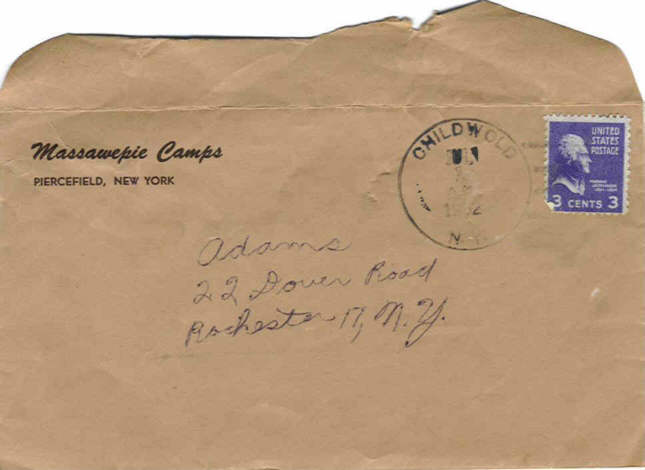 Massawepie Camps
PIERCEFIELD, NEW YORK
CHILDWOLD
N.Y.
UNITED
STATES
POSTAGE
3 CENTS 3
Adams
22 Dover Road
Rochester 17, N.Y.